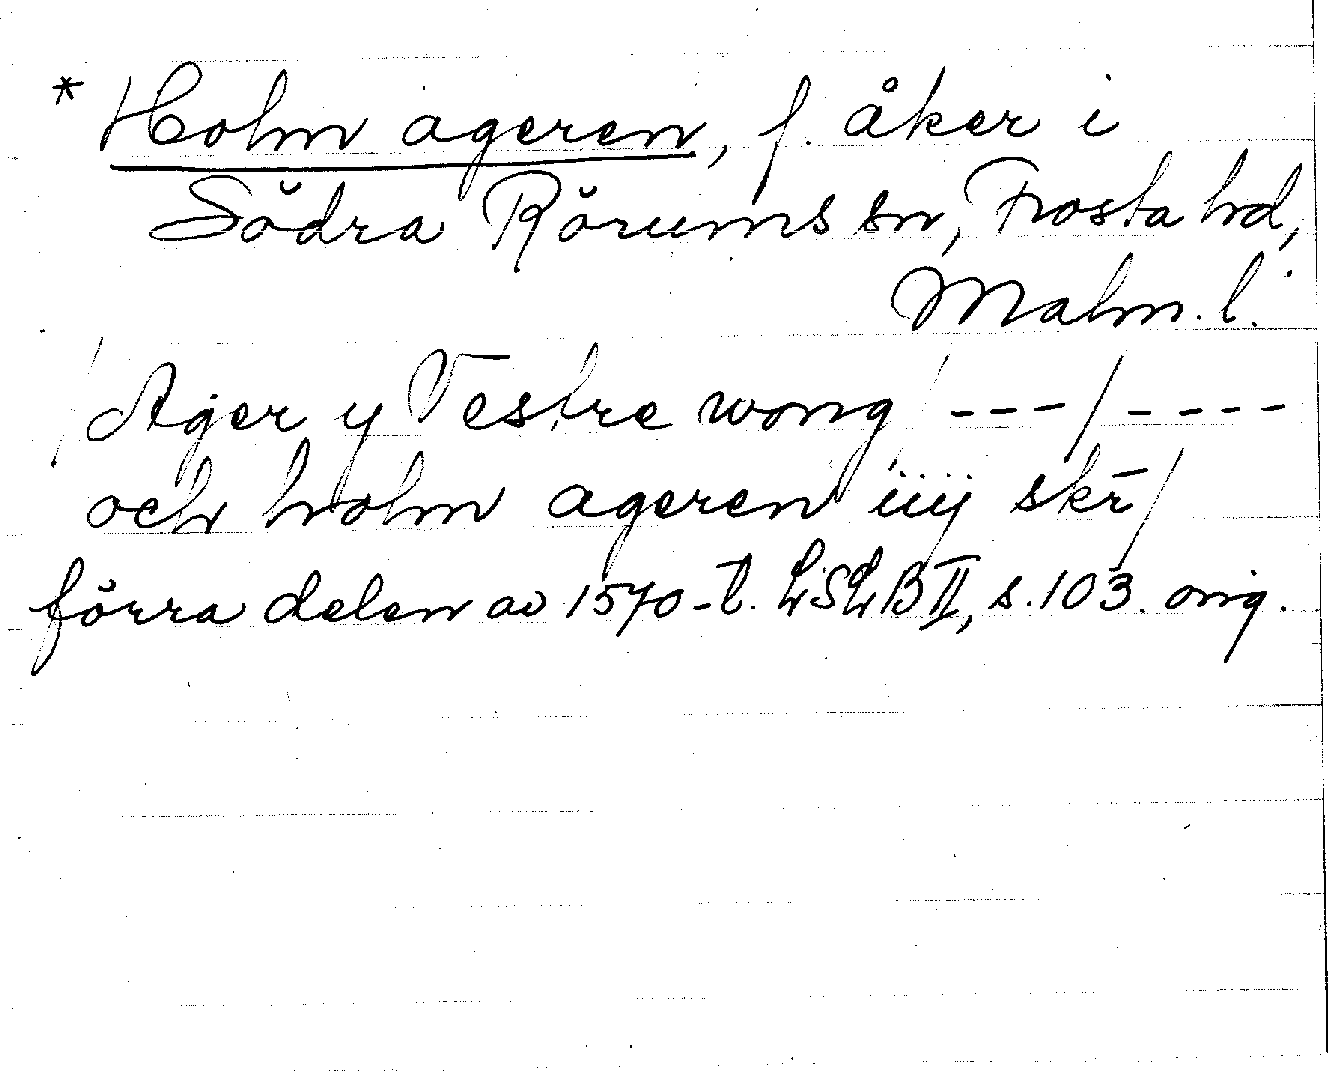 * Holm ageren, f. åker i
Södra Rörums sn, Frosta hd,
Malm. l.
/Ager y Vestre wong/ ---/----
och holm ageren iiij skr̄/
förra delen av 1570-t. LSLB II, s. 103. orig.